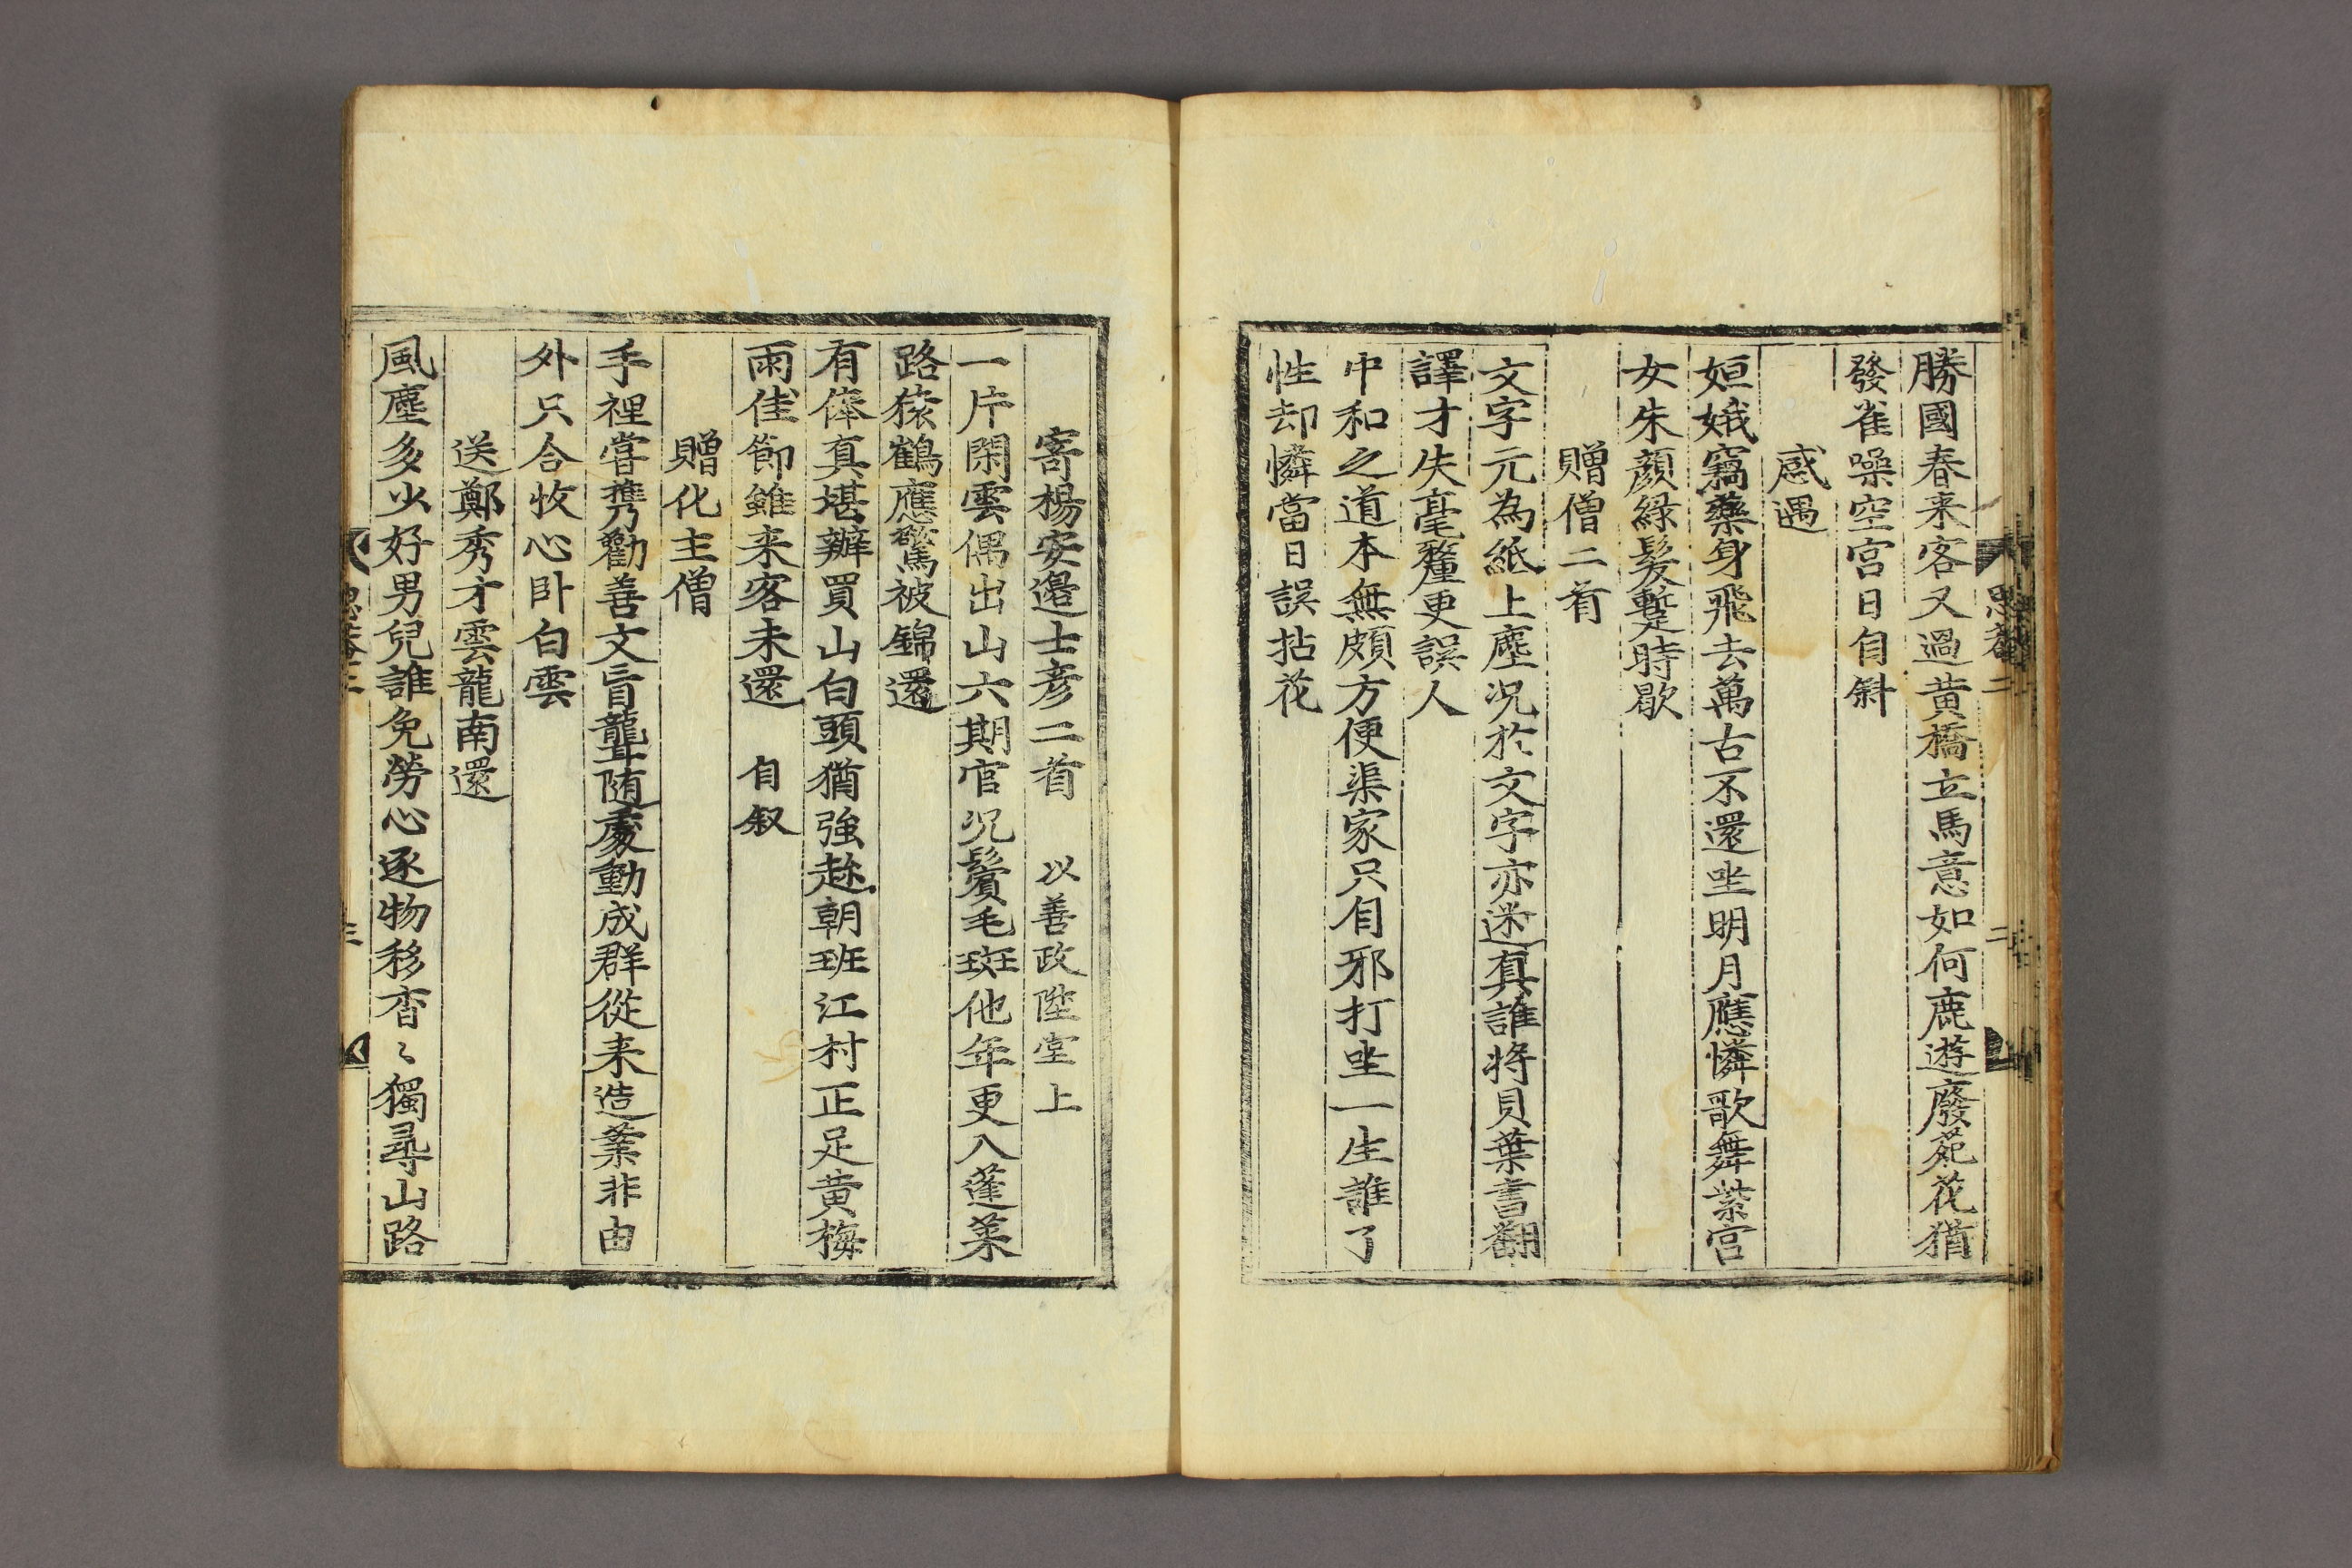 勝國春来客又過黄橋立馬意如何鹿遊廢苑花猶
發雀噪空宫日自斜
感遇
姮娥竊藥身飛去萬古不還坐明月應憐歌舞紫宫
女朱顔緑髪蹔時歇
贈僧二首
文字元為紙上塵况於文字亦迷真誰将貝葉書翻
譯才失毫釐更誤人
中和之道本無頗方便渠家只自邪打坐一生誰了
性却憐當日誤拈花
寄楊安邊士彦二首 以善政陞堂上
一片閑雲偶出山六期官况鬢毛斑他年更入蓬莱
路猿鶴應驚被錦還
有俸真堪辦買山白頭猶強趂朝班江村正足黄梅
雨佳節雖来客未還 自叙
贈化主僧
手裡嘗携勸善文盲聾随處動成群從来造業非由
外只合牧心卧白雲
送鄭秀才雲龍南還
風塵多少好男兒誰免勞心逐物移杳〻獨尋山路